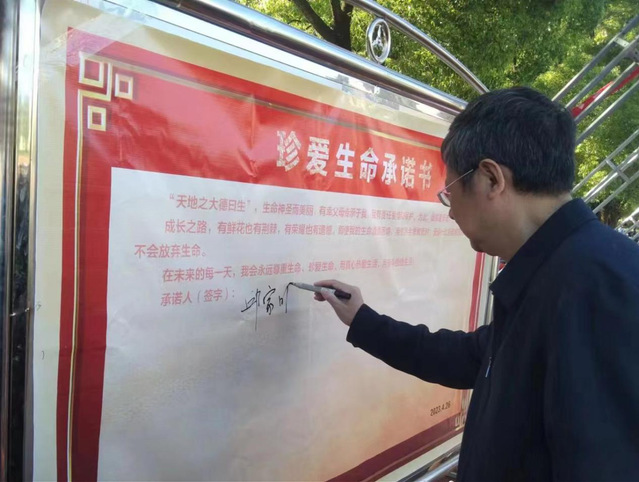 珍爱生命承诺书
“天地之大德曰生”，生命神圣而美丽，
成长之路，有鲜花也有荆棘，有荣耀也有遗憾，
不会放弃生命。
在未来的每一天，我会永远尊重生命、珍爱生命，
承诺人（签字）：邱家
2023.4.26